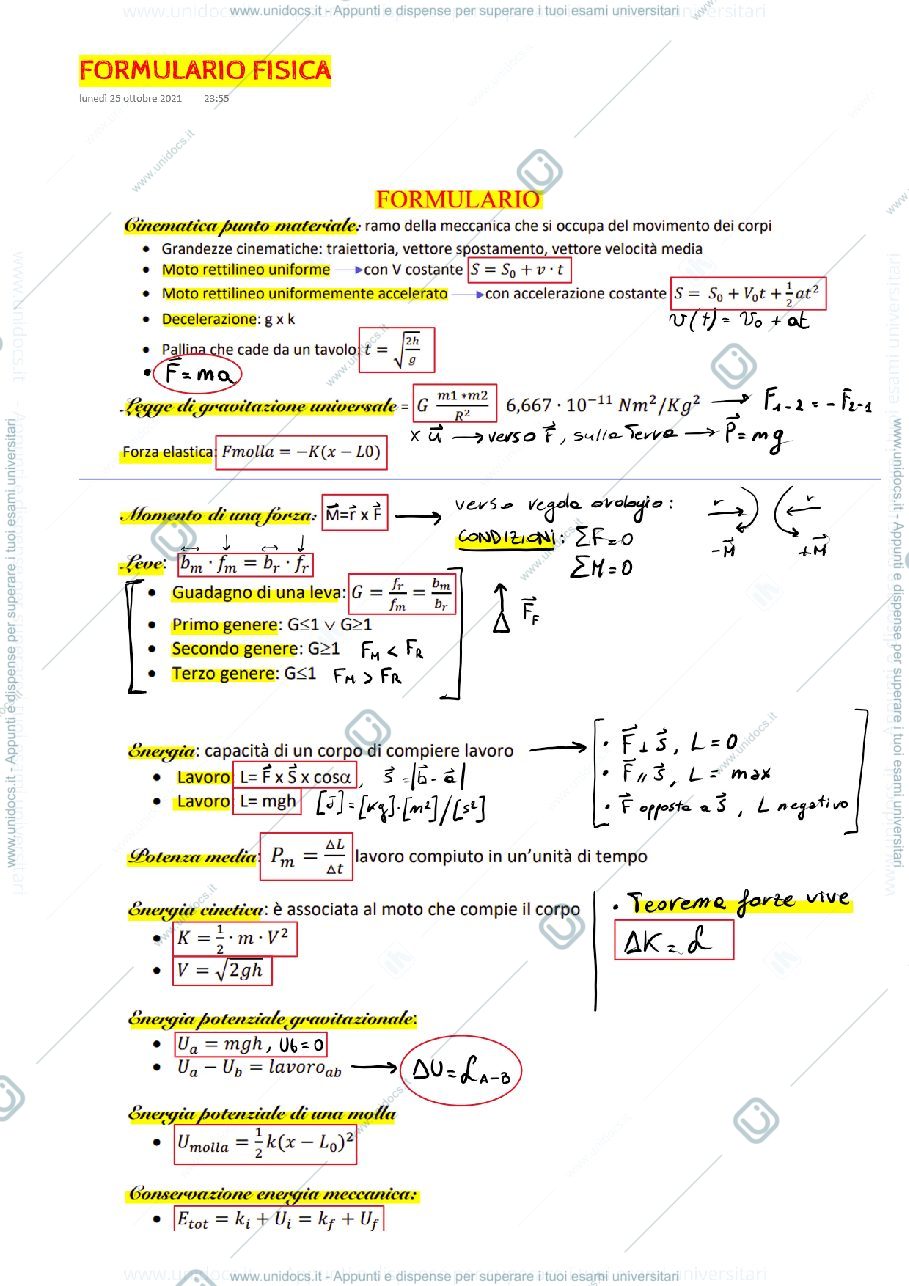 www.unidocs.it - Appunti e dispense per superare i tuoi esami universitari
FORMULARIO FISICA
lunedì 25 ottobre 2021 23:55
FORMULARIO
Cinematica punto materiale: ramo della meccanica che si occupa del movimento dei corpi
• Grandezze cinematiche: traiettoria, vettore spostamento, vettore velocità media
• Moto rettilineo uniforme → con V costante S = S₀ + v · t
• Moto rettilineo uniformemente accelerato → con accelerazione costante S = S₀ + V₀t + 1/2 at²
v(t) = v₀ + at
• Decelerazione: g x k
• Pallina che cade da un tavolo: t = √(2h/g)
• F⃗ = ma
Legge di gravitazione universale = G m1*m2/R² 6,667 · 10⁻¹¹ Nm²/Kg² → F₁₋₂ = - F₂₋₁
x u⃗ → verso r⃗, sulla Terra → P⃗ = mg
Forza elastica: Fmolla = −K(x − L0)
Momento di una forza: M⃗=r⃗ x F⃗ → verso regola orologio: r -M⃗ r +M⃗
CONDIZIONI: ΣF=0
ΣM=0
Leve: bₘ · fₘ = bᵣ · fᵣ
• Guadagno di una leva: G = fᵣ/fₘ = bₘ/bᵣ
F⃗F
• Primo genere: G≤1 ∨ G≥1
• Secondo genere: G≥1 FM < FR
• Terzo genere: G≤1 FM > FR
Energia: capacità di un corpo di compiere lavoro →
• F⃗ ⊥ S⃗, L = 0
• Lavoro L= F⃗ x S⃗ x cosα, S⃗ = |b⃗ - a⃗|
• F⃗ // S⃗, L = max
• Lavoro L= mgh [J] = [kg]·[m²]/[s²]
• F⃗ opposta a S⃗, L negativo
Potenza media: Pₘ = ΔL/Δt lavoro compiuto in un'unità di tempo
Energia cinetica: è associata al moto che compie il corpo
• K = 1/2 · m · V²
• V = √2gh
• Teorema forze vive
ΔK = L
Energia potenziale gravitazionale:
• Uₐ = mgh, Ub = 0
• Uₐ − U_b = lavoro_ab → ΔU = L A-B
Energia potenziale di una molla
• U_molla = 1/2 k(x − L₀)²
Conservazione energia meccanica:
• E_tot = k_i + U_i = k_f + U_f
www.unidocs.it - Appunti e dispense per superare i tuoi esami universitari
www.unidocs.it - Appunti e dispense per superare i tuoi esami universitari
www.unidocs.it - Appunti e dispense per superare i tuoi esami universitari